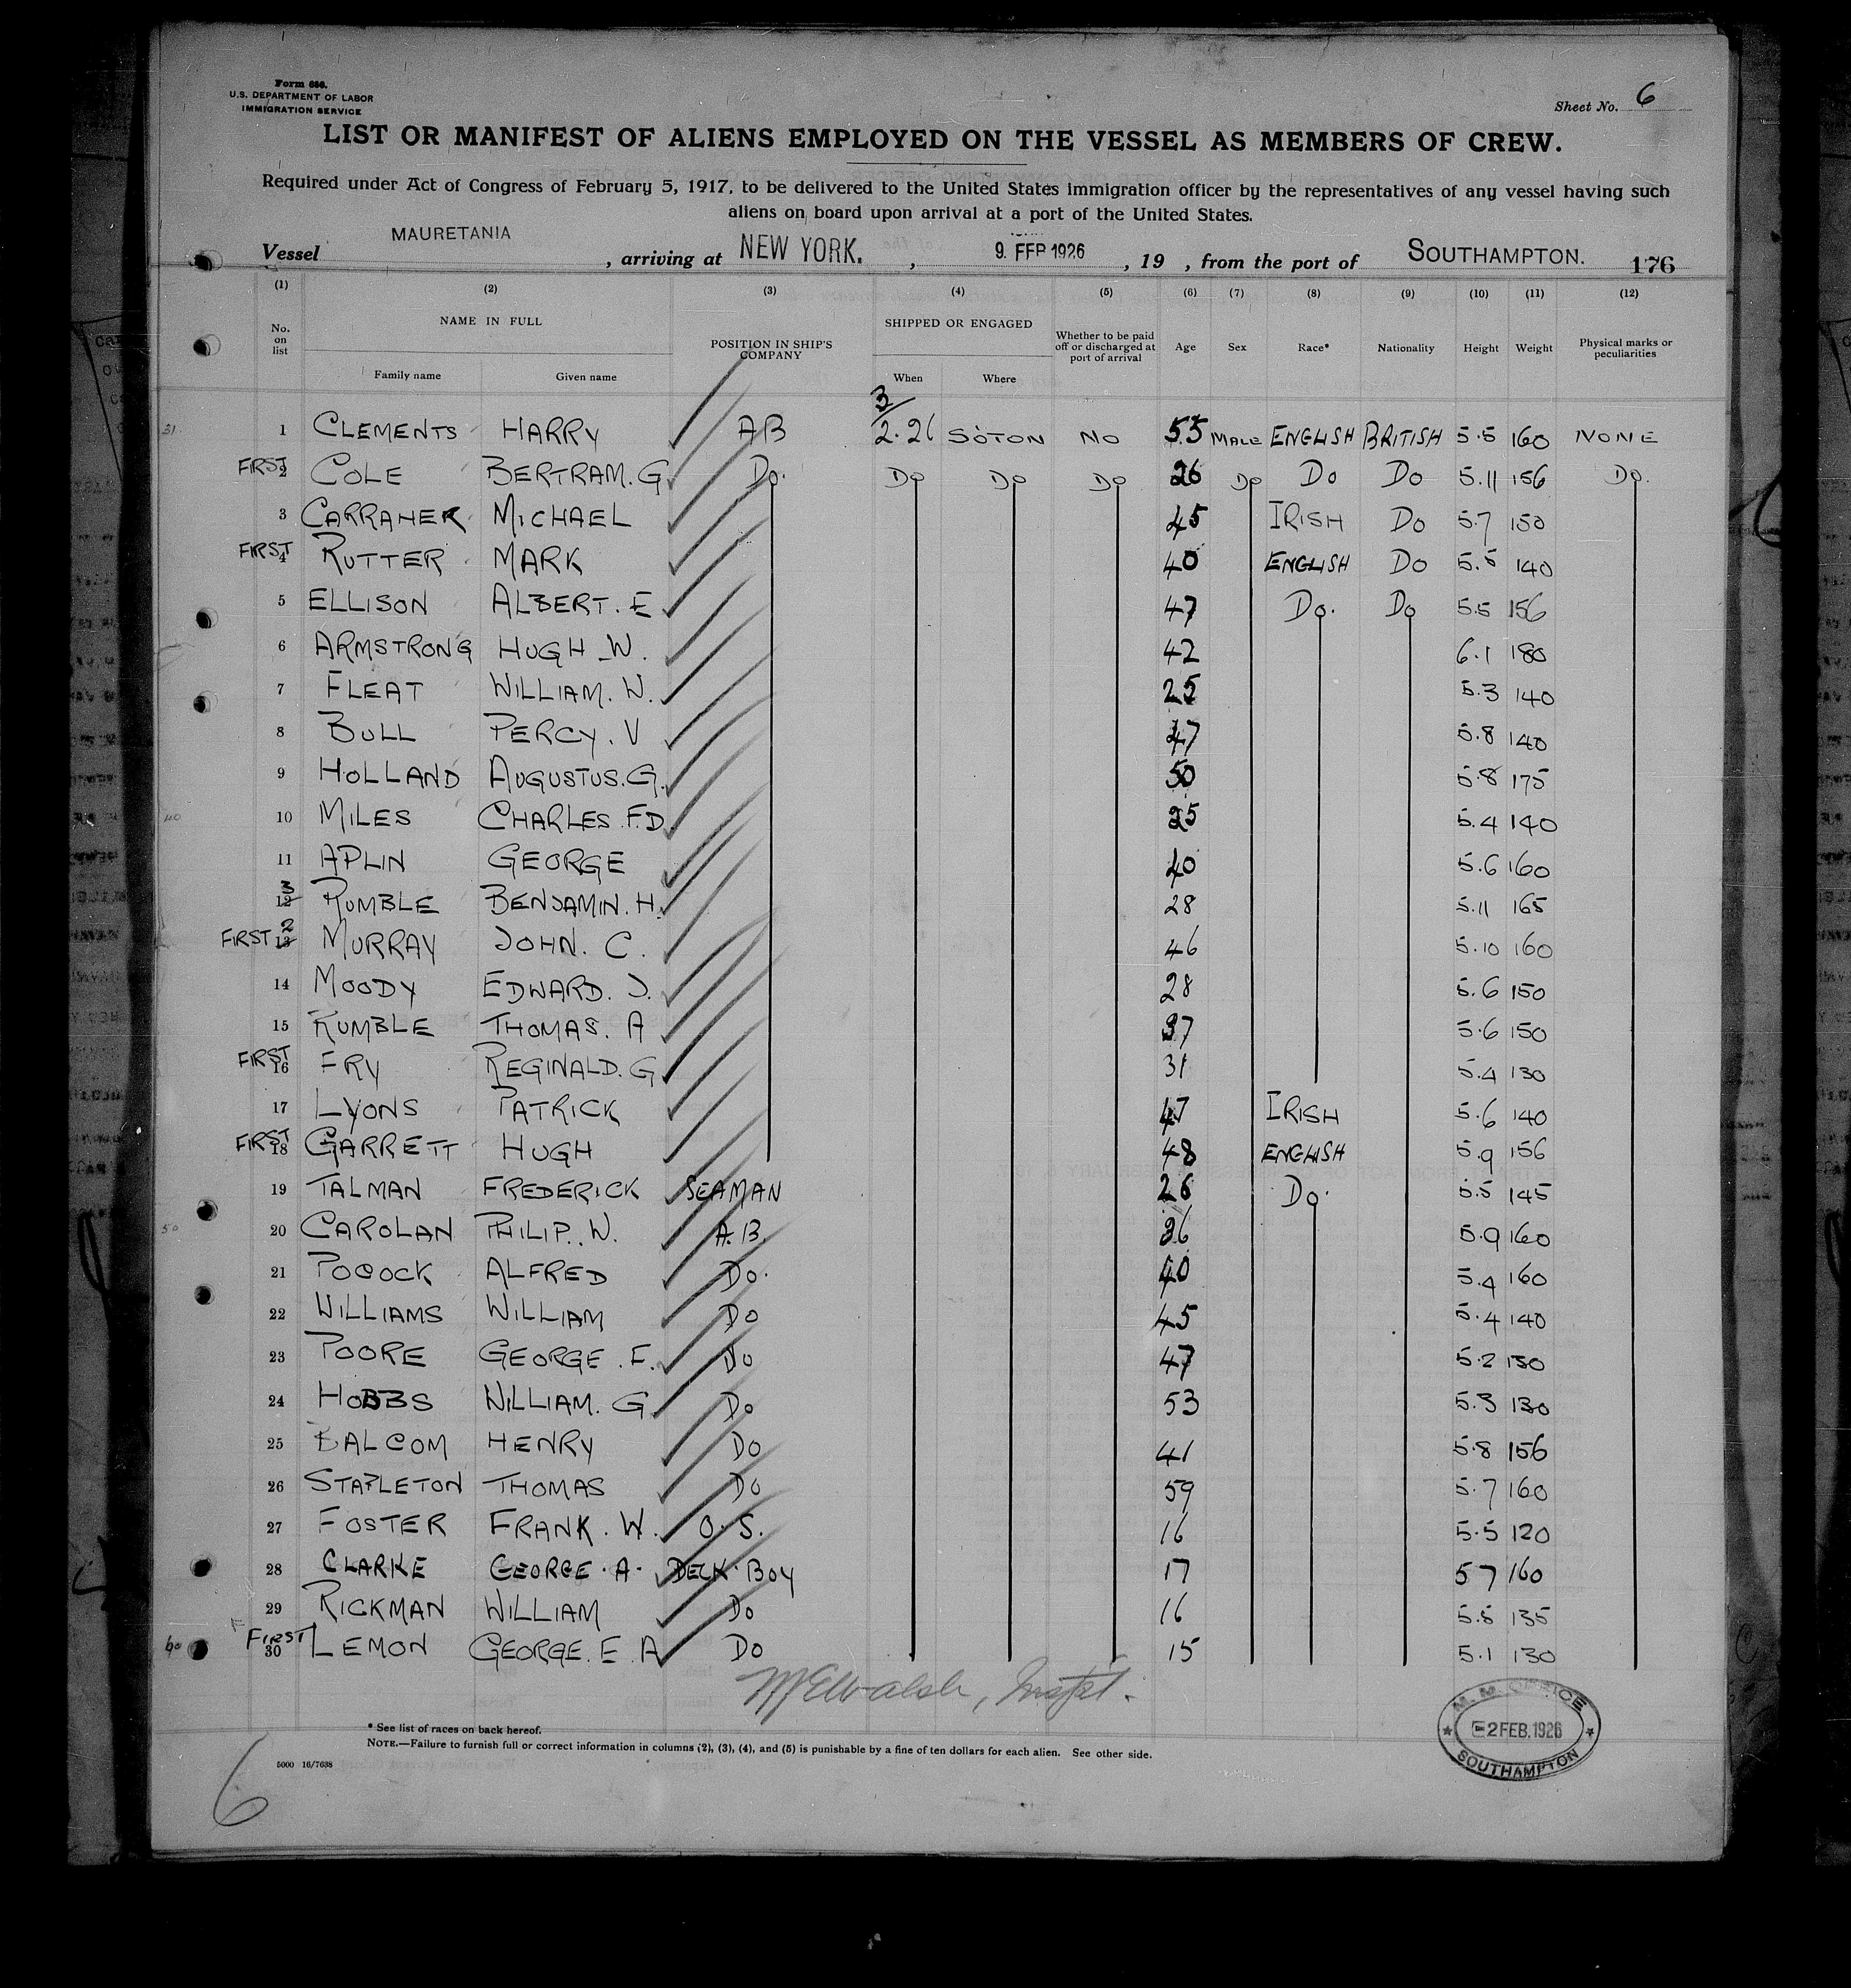 Form 686.
U.S. DEPARTMENT OF LABOR
IMMIGRATION SERVICE
Sheet No. 6
LIST OR MANIFEST OF ALIENS EMPLOYED ON THE VESSEL AS MEMBERS OF CREW.
Required under Act of Congress of February 5, 1917, to be delivered to the United States immigration officer by the representatives of any vessel having such
aliens on board upon arrival at a port of the United States.
Vessel MAURETANIA, arriving at NEW YORK., 9. FEB 1926, 19 , from the port of SOUTHAMPTON. 176
(1) (2) (3) (4) (5) (6) (7) (8) (9) (10) (11) (12)
No. on list NAME IN FULL POSITION IN SHIP'S COMPANY SHIPPED OR ENGAGED Whether to be paid off or discharged at port of arrival Age Sex Race* Nationality Height Weight Physical marks or peculiarities
Family name Given name When Where
31 1 CLEMENTS HARRY AB 3/2.26 SOTON NO 55 MALE ENGLISH BRITISH 5.5 160 NONE
FIRST 2 COLE BERTRAM. G Do. Do Do Do 26 Do Do Do 5.11 156 Do.
3 CARRAHER MICHAEL 45 IRISH Do 5.7 150
FIRST 4 RUTTER MARK 40 ENGLISH Do 5.5 140
5 ELLISON ALBERT. E 47 Do. Do 5.5 156
6 ARMSTRONG HUGH W. 42 6.1 180
7 FLEAT WILLIAM. W. 25 5.3 140
8 BULL PERCY. V 47 5.8 140
9 HOLLAND AUGUSTUS. G. 50 5.8 175
40 10 MILES CHARLES. F.D. 25 5.4 140
11 APLIN GEORGE 40 5.6 160
12 3 RUMBLE BENJAMIN. H. 28 5.11 165
FIRST 13 2 MURRAY JOHN. C. 46 5.10 160
14 MOODY EDWARD. J. 28 5.6 150
15 RUMBLE THOMAS. A 37 5.6 150
FIRST 16 FRY REGINALD. G 31 5.4 130
17 LYONS PATRICK 47 IRISH 5.6 140
FIRST 18 GARRETT HUGH 48 ENGLISH 5.9 156
19 TALMAN FREDERICK SEAMAN 26 Do. 5.5 145
50 20 CAROLAN PHILIP. W. A.B. 36 5.9 160
21 POCOCK ALFRED Do. 40 5.4 160
22 WILLIAMS WILLIAM Do 45 5.4 140
23 POORE GEORGE. F. Do 47 5.2 130
24 HOBBS WILLIAM. G. Do 53 5.3 130
25 BALCOM HENRY Do 41 5.8 156
26 STAPLETON THOMAS Do 59 5.7 160
27 FOSTER FRANK. W. O.S. 16 5.5 120
28 CLARKE GEORGE. A. DECK. BOY 17 5 7 160
29 RICKMAN WILLIAM Do 16 5.5 135
60 FIRST 30 LEMON GEORGE. E. A Do 15 5.1 130
* See list of races on back hereof.
NOTE.—Failure to furnish full or correct information in columns (2), (3), (4), and (5) is punishable by a fine of ten dollars for each alien. See other side.
5000 16/7638
M. M. OFFICE
2 FEB. 1926
SOUTHAMPTON
6